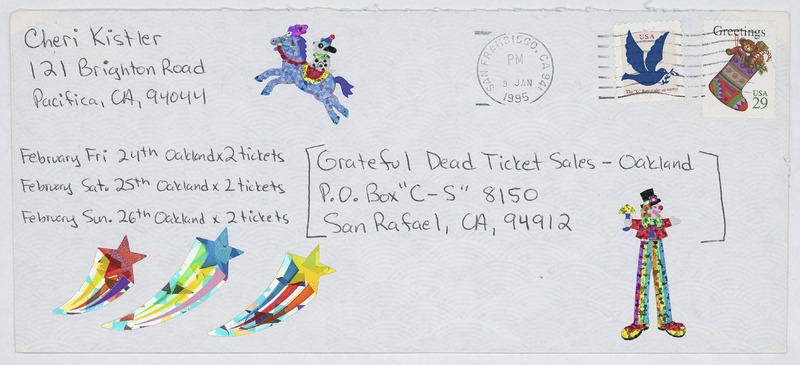 Cheri Kistler
121 Brighton Road
Pacifica, CA, 94044
SAN FRANCISCO, CA 941
PM
9 JAN
1995
USA
Greetings
USA
29
February Fri 24th Oakland x 2 tickets
February Sat. 25th Oakland x 2 tickets
February Sun. 26th Oakland x 2 tickets
Grateful Dead Ticket Sales - Oakland
P.O. Box "C-S" 8150
San Rafael, CA, 94912